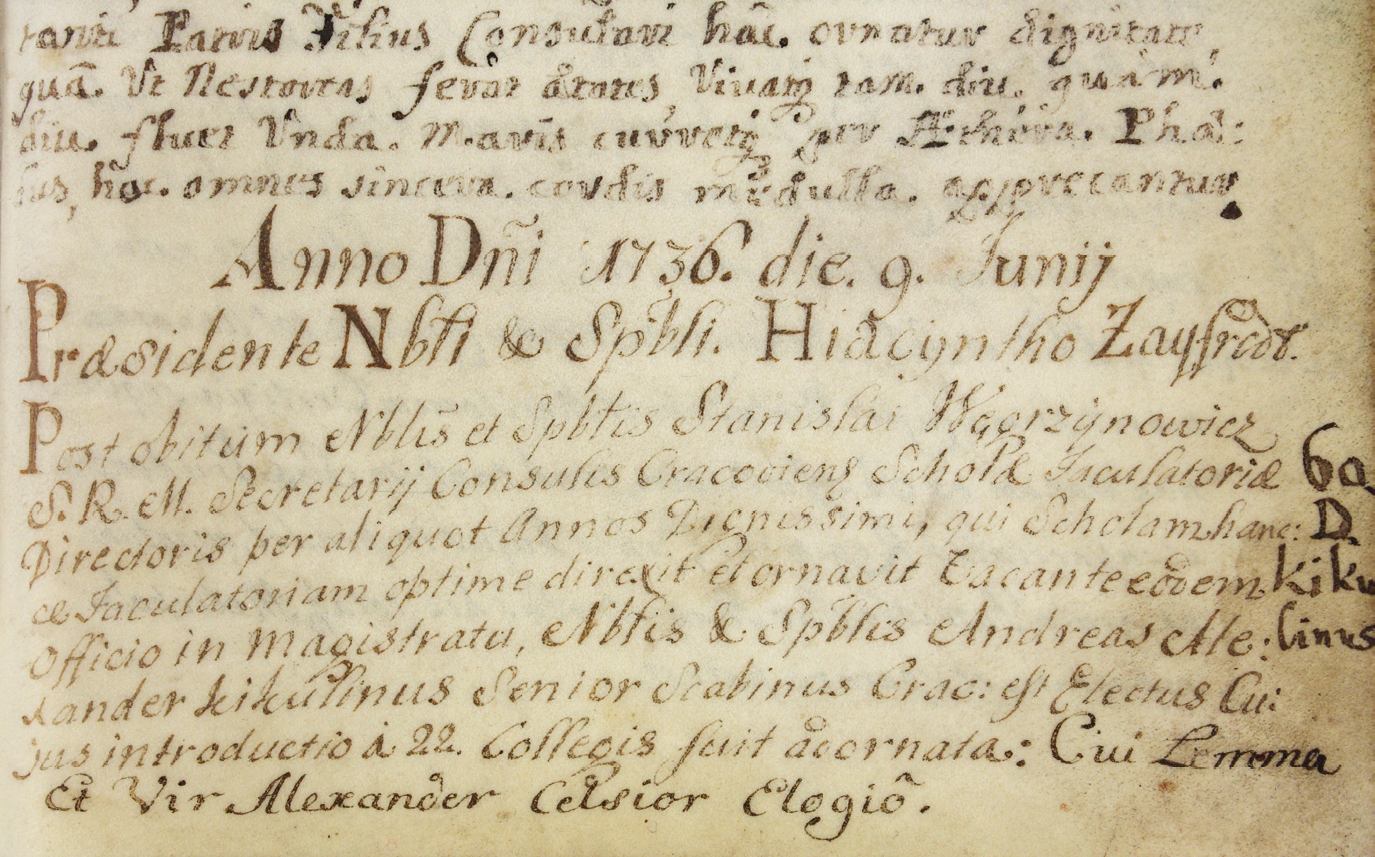 tanti Patris Filius Consulari hâc. ornatur dignitate,
quâ. Ut Nestoreas ferat ætates, Vivatq tam. diu. quàm.
diu. fluet Unda. Maris curretq per Æthera. Phæ:
bus, hoc. omnes sincera. cordis medulla. apprecantur.
Anno Dñi 1736. die. 9. Junij
Præsidente Nbli & Spbli. Hiacyntho Zayfredt.
Post obitum Nblis et Spblis Stanislai Węgrzynowicz
S. R. M. Secretarij Consulis Cracoviens Scholæ Jaculatoriæ
Directoris per aliquot Annos Dignissimi, qui Scholam hanc:
ce Jaculatoriam optime direxit et ornavit Vacante eodem
Officio in Magistratu, Nblis & Spblis Andreas Ale:
xander kikulinus Senior Scabinus Crac: est Electus Cu:
jus introductio à 22. Collegis fuit adornata: Cui Lemma
Et Vir Alexander Celsior Elogiô.
60
D.
kiku
linus